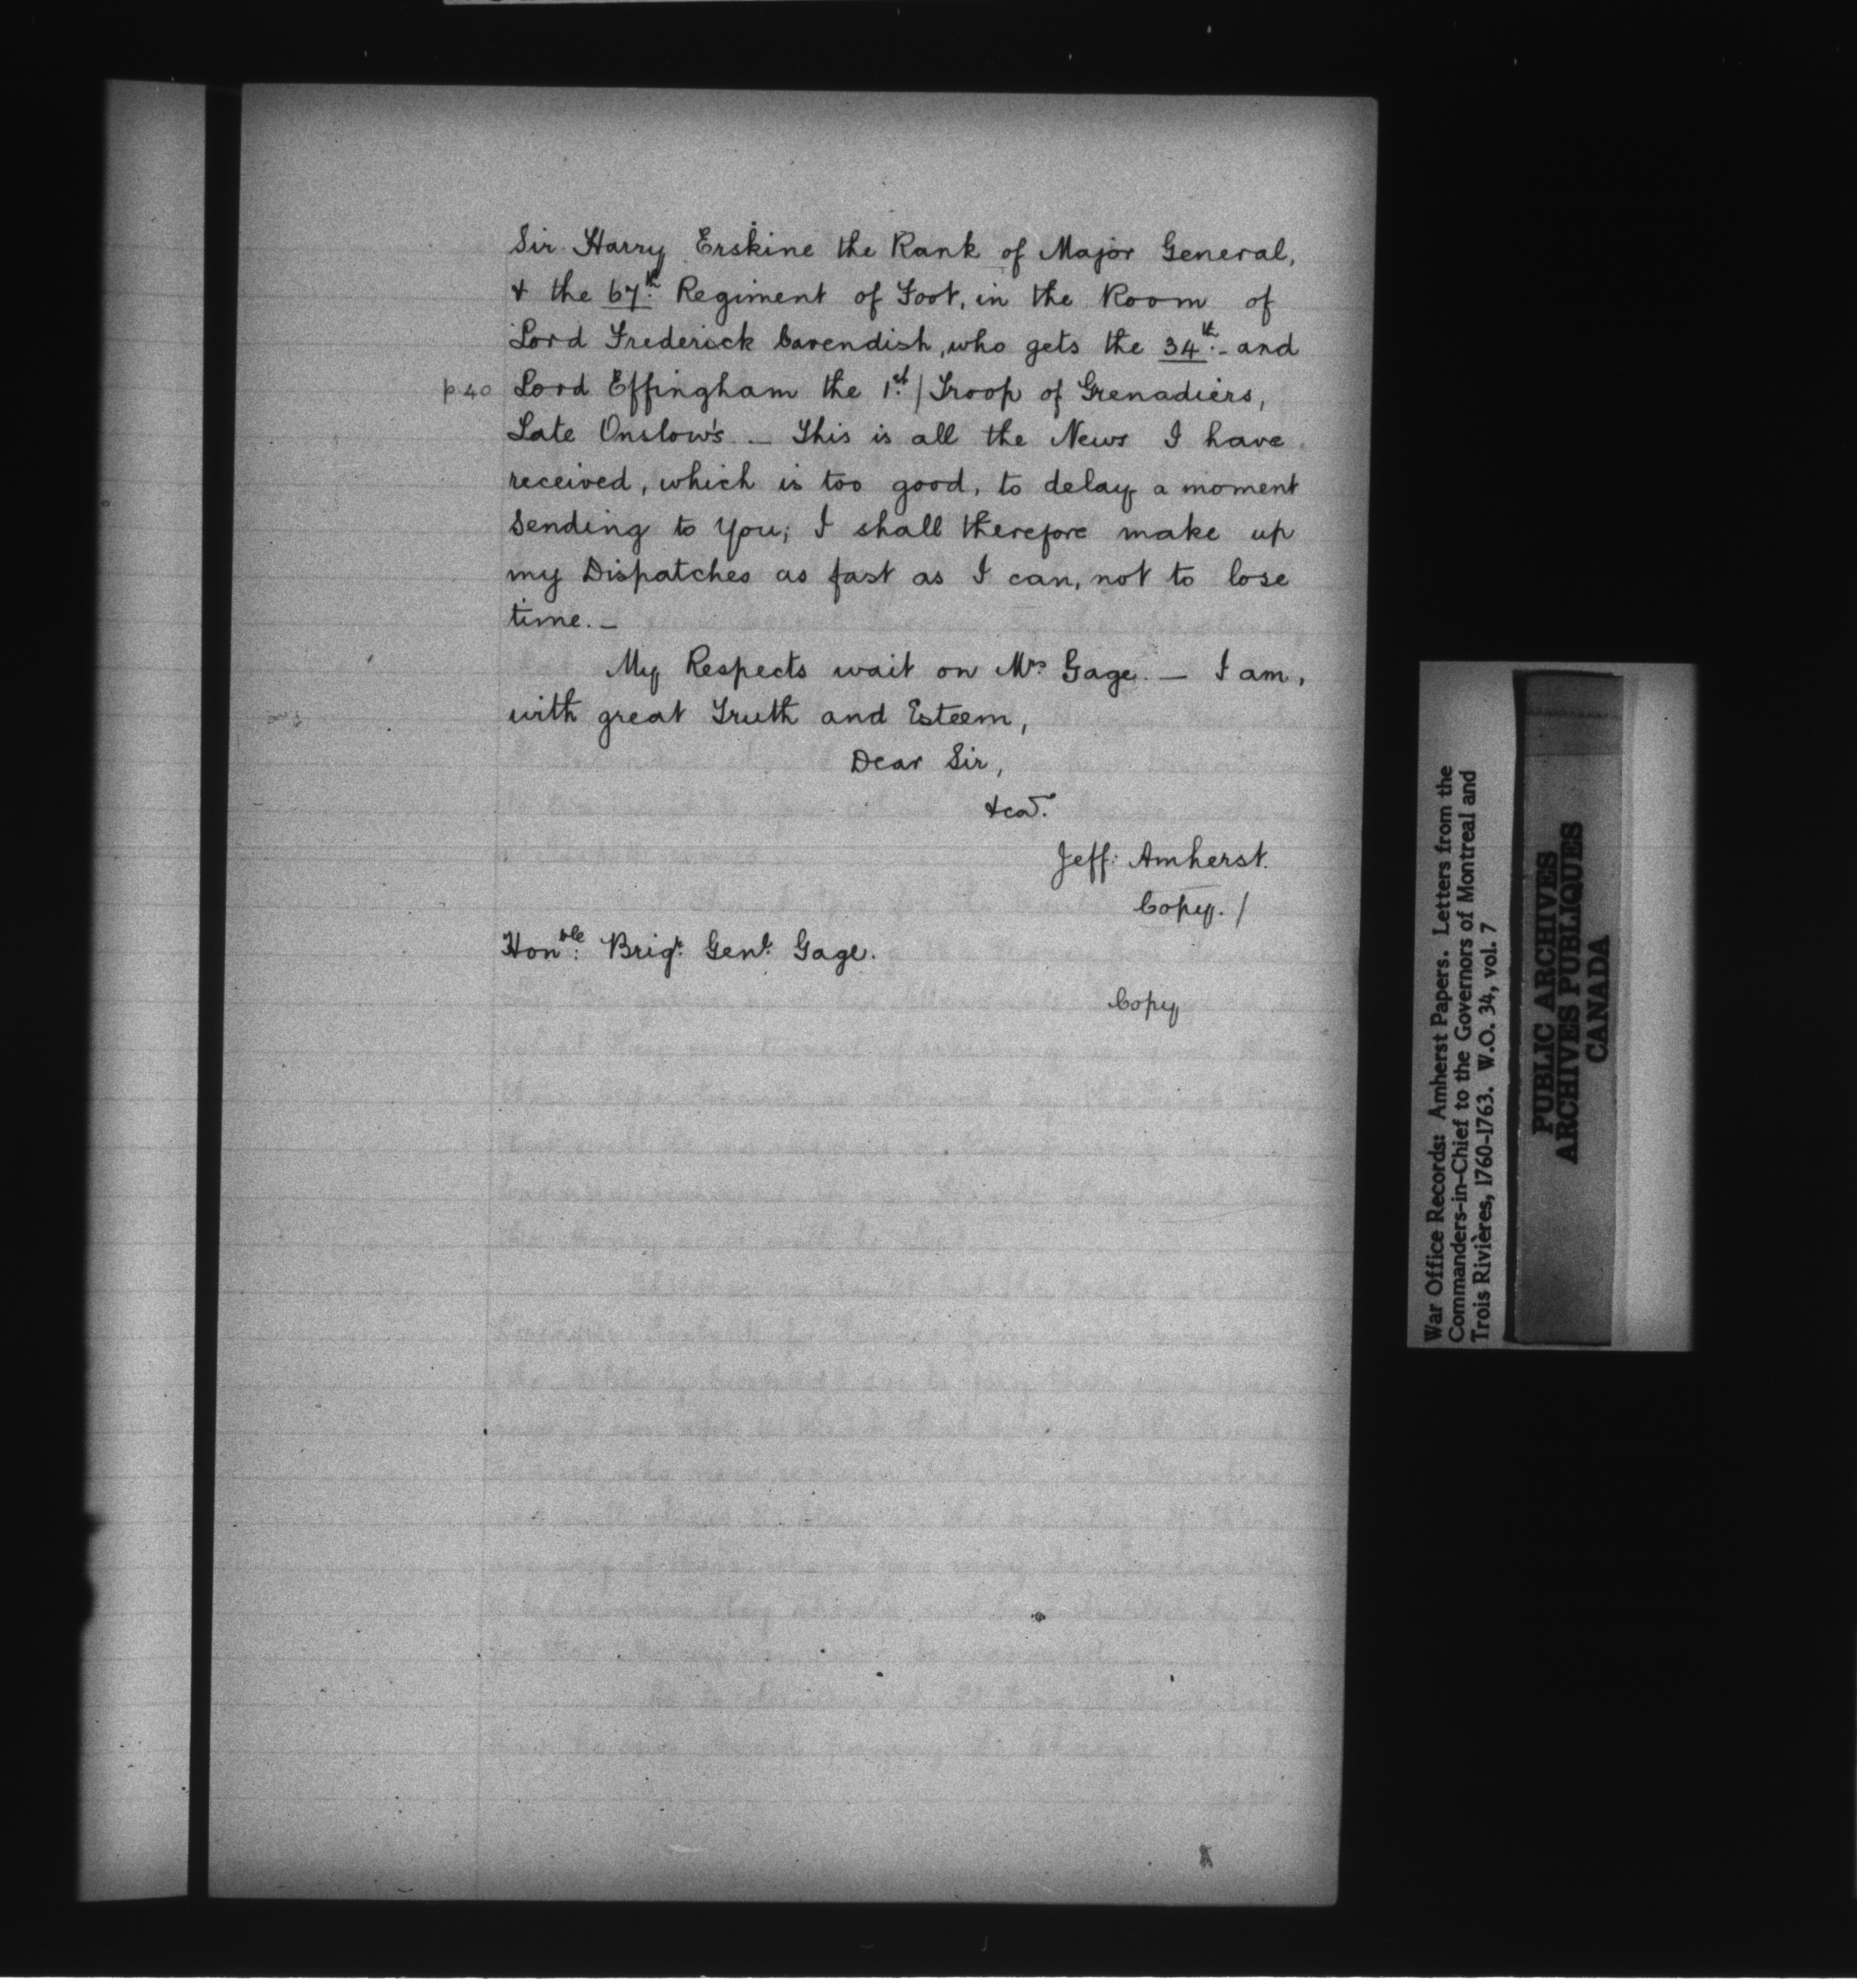 Sir Harry Erskine the Rank of Major General,
& the 67th. Regiment of Foot, in the Room of
Lord Frederick Cavendish, who gets the 34th. - and
p 40 Lord Effingham the 1st. / Troop of Grenadiers,
Late Onslow's. _ This is all the News I have
received, which is too good, to delay a moment
sending to You; I shall therefore make up
my Dispatches as fast as I can, not to lose
time. _
My Respects wait on Mrs. Gage. _ I am,
with great Truth and Esteem,
Dear Sir,
&ca.
Jeff: Amherst.
Copy. /
Honble: Brigr. Genl. Gage.
Copy
War Office Records: Amherst Papers. Letters from the
Commanders-in-Chief to the Governors of Montreal and
Trois Rivières, 1760-1763. W.O. 34, vol. 7
PUBLIC ARCHIVES
ARCHIVES PUBLIQUES
CANADA